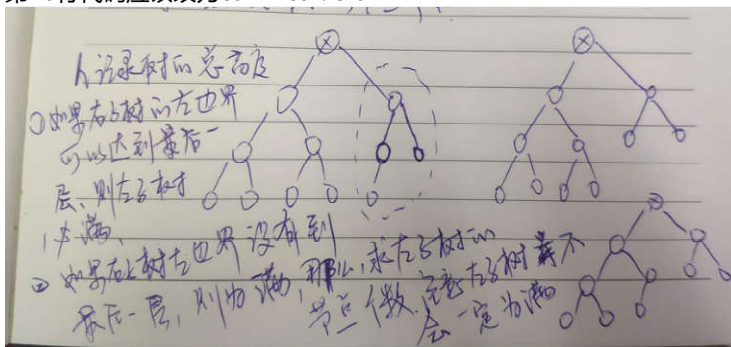 h记录树的总高度
①如果右子树的左边界
可以达到最后一
层、则左子树
必满、
②如果右子树左边界没有到
最后一层,则为满,那么,求左子树的
节点个数.注意左子树
不
层一定为满